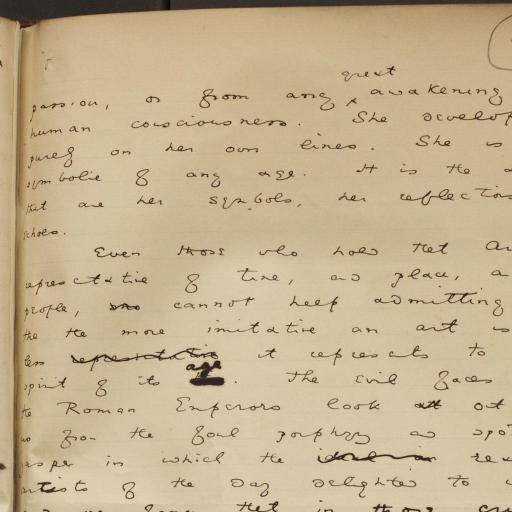 great
passion, or from any awakening
human consciousness. She develop
purely on her own lines. She is
symbolic of any age. It is the
that are her symbols, her reflection
echoes.
Even those who hold that Ar
representative of time, and place, a
people, cannot help admitting
the the more imitative an art is
less representative it represents to
age
spirit of its . The evil faces
the Roman Emperors look out at
us from the foul porphyry and spot
jasper in which the rea
artists of the day delighted to
that in those cru